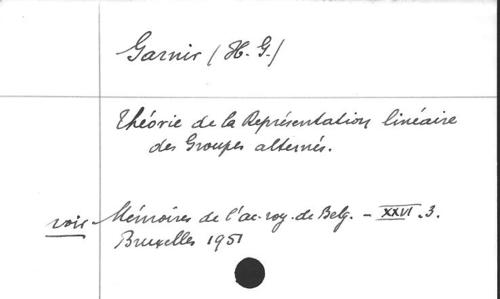 Garnir (H. G.)
Théorie de la Représentation linéaire
des Groupes alternés.
voir Mémoires de l'ac. roy. de Belg. – XXVI. 3.
Bruxelles 1951